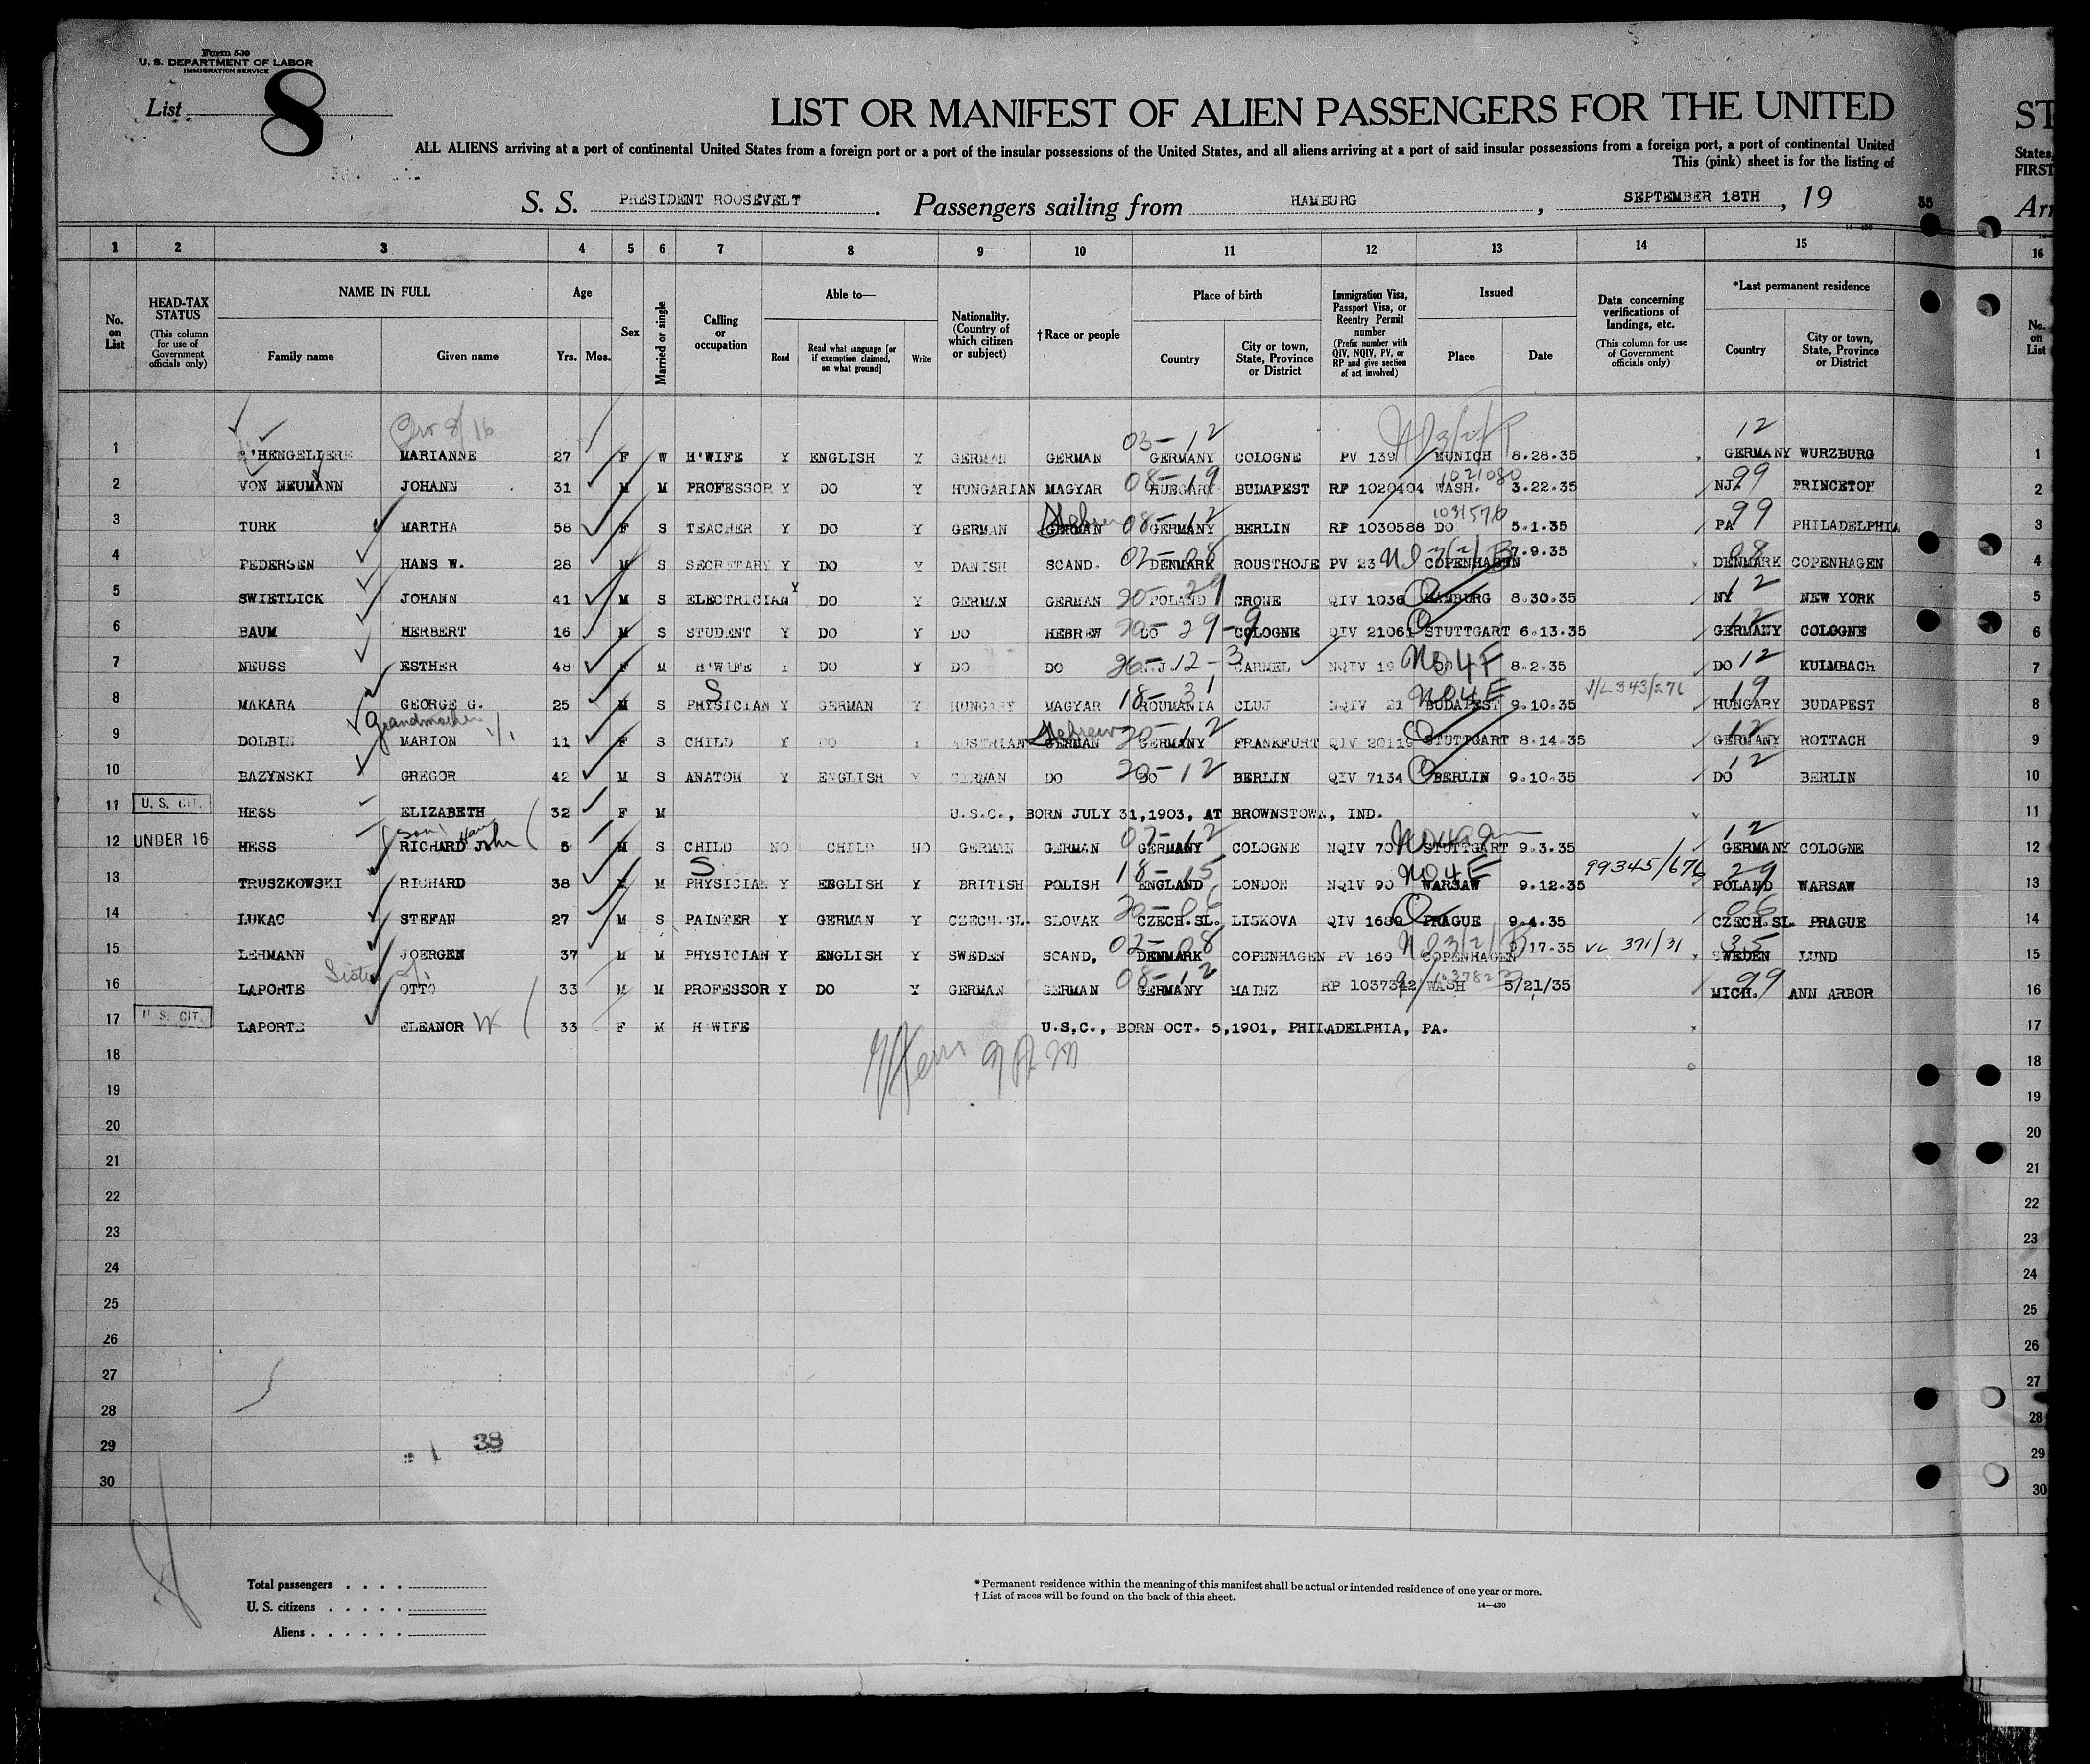 Form 500
U. S. DEPARTMENT OF LABOR
IMMIGRATION SERVICE
List 8
LIST OR MANIFEST OF ALIEN PASSENGERS FOR THE UNITED
ST
ALL ALIENS arriving at a port of continental United States from a foreign port or a port of the insular possessions of the United States, and all aliens arriving at a port of said insular possessions from a foreign port, a port of continental United
States,
This (pink) sheet is for the listing of
FIRST
S. S. PRESIDENT ROOSEVELT . Passengers sailing from HAMBURG , SEPTEMBER 18TH , 19 35
Arr
1 2 3 4 5 6 7 8 9 10 11 12 13 14 15 16
No. on List
HEAD-TAX STATUS (This column for use of Government officials only)
NAME IN FULL Family name Given name
Age Yrs. Mos.
Sex
Married or single
Calling or occupation
Able to— Read Read what language [or if exemption claimed, on what ground] Write
Nationality. (Country of which citizen or subject)
† Race or people
Place of birth Country City or town, State, Province or District
Immigration Visa, Passport Visa, or Reentry Permit number (Prefix number with QIV, NQIV, PV, or RP and give section of act involved)
Issued Place Date
Data concerning verifications of landings, etc. (This column for use of Government officials only)
*Last permanent residence Country City or town, State, Province or District
No. on List
03-12 12
1 MARIANNE 27 F W H'WIFE Y ENGLISH Y GERMAN GERMAN GERMANY COLOGNE PV 139 MUNICH 8.28.35 GERMANY WURZBURG 1
08-19 1021080 99
2 VON NEUMANN JOHANN 31 M M PROFESSOR Y DO Y HUNGARIAN MAGYAR HUNGARY BUDAPEST RP 1020404 WASH. 3.22.35 NJ. PRINCETON 2
Hebrew 08-12 1031576 99
3 TURK MARTHA 58 F S TEACHER Y DO Y GERMAN GERMAN GERMANY BERLIN RP 1030588 DO 5.1.35 PA PHILADELPHIA 3
02-08 08
4 PEDERSEN HANS W. 28 M S SECRETARY Y DO Y DANISH SCAND. DENMARK ROUSTHOJE PV 23 COPENHAGEN 7.9.35 DENMARK COPENHAGEN 4
20-29 12
5 SWIETLICK JOHANN 41 M S ELECTRICIAN Y DO Y GERMAN GERMAN POLAND CRONE QIV 1036 HAMBURG 8.30.35 NY NEW YORK 5
20-29-9 12
6 BAUM HERBERT 16 M S STUDENT Y DO Y DO HEBREW DO COLOGNE QIV 21061 STUTTGART 6.13.35 GERMANY COLOGNE 6
26-12-3 No 4F 12
7 NEUSS ESTHER 48 F M H'WIFE Y DO Y DO DO N.J. CARMEL NQIV 19 DO 8.2.35 DO KULMBACH 7
S 18-31 No 4E V/L 343/276 19
8 MAKARA GEORGE G. 25 M S PHYSICIAN Y GERMAN Y HUNGARY MAGYAR ROUMANIA CLUJ NQIV 21 BUDAPEST 9.10.35 HUNGARY BUDAPEST 8
Grandmother Hebrew 20-12 12
9 DOLBIN MARION 11 F S CHILD Y DO Y AUSTRIAN GERMAN GERMANY FRANKFURT QIV 20119 STUTTGART 8.14.35 GERMANY ROTTACH 9
20-12 12
10 BAZYNSKI GREGOR 42 M S ANATOM Y ENGLISH Y GERMAN DO DO BERLIN QIV 7134 BERLIN 9.10.35 DO BERLIN 10
11 U. S. CIT. HESS ELIZABETH 32 F M U.S.C., BORN JULY 31,1903, AT BROWNSTOWN, IND. 11
Son 07-12 12
12 UNDER 16 HESS RICHARD John 5 M S CHILD NO CHILD NO GERMAN GERMAN GERMANY COLOGNE NQIV 70 STUTTGART 9.3.35 GERMANY COLOGNE 12
S 18-15 No 4E 99345/676 29
13 TRUSZKOWSKI RICHARD 38 M M PHYSICIAN Y ENGLISH Y BRITISH POLISH ENGLAND LONDON NQIV 90 WARSAW 9.12.35 POLAND WARSAW 13
20-06 06
14 LUKAC STEFAN 27 M S PAINTER Y GERMAN Y CZECH.SL. SLOVAK CZECH.SL. LISKOVA QIV 1680 PRAGUE 9.4.35 CZECH.SL PRAGUE 14
02-08 VL 371/31 35
15 LEHMANN JOERGEN 37 M M PHYSICIAN Y ENGLISH Y SWEDEN SCAND. DENMARK COPENHAGEN PV 169 COPENHAGEN 9/17.35 SWEDEN LUND 15
08-12 99
16 LAPORTE OTTO 33 M M PROFESSOR Y DO Y GERMAN GERMAN GERMANY MAINZ RP 1037342 WASH 5/21/35 MICH. ANN ARBOR 16
17 U. S. CIT. LAPORTE ELEANOR W 33 F M H'WIFE U.S.C., BORN OCT. 5,1901, PHILADELPHIA, PA. 17
18 18
19 19
20 20
21 21
22 22
23 23
24 24
25 25
26 26
27 27
28 28
29 38 29
30 30
Total passengers . . . .
U. S. citizens . . . . .
Aliens . . . . . .
* Permanent residence within the meaning of this manifest shall be actual or intended residence of one year or more.
† List of races will be found on the back of this sheet.
14—430